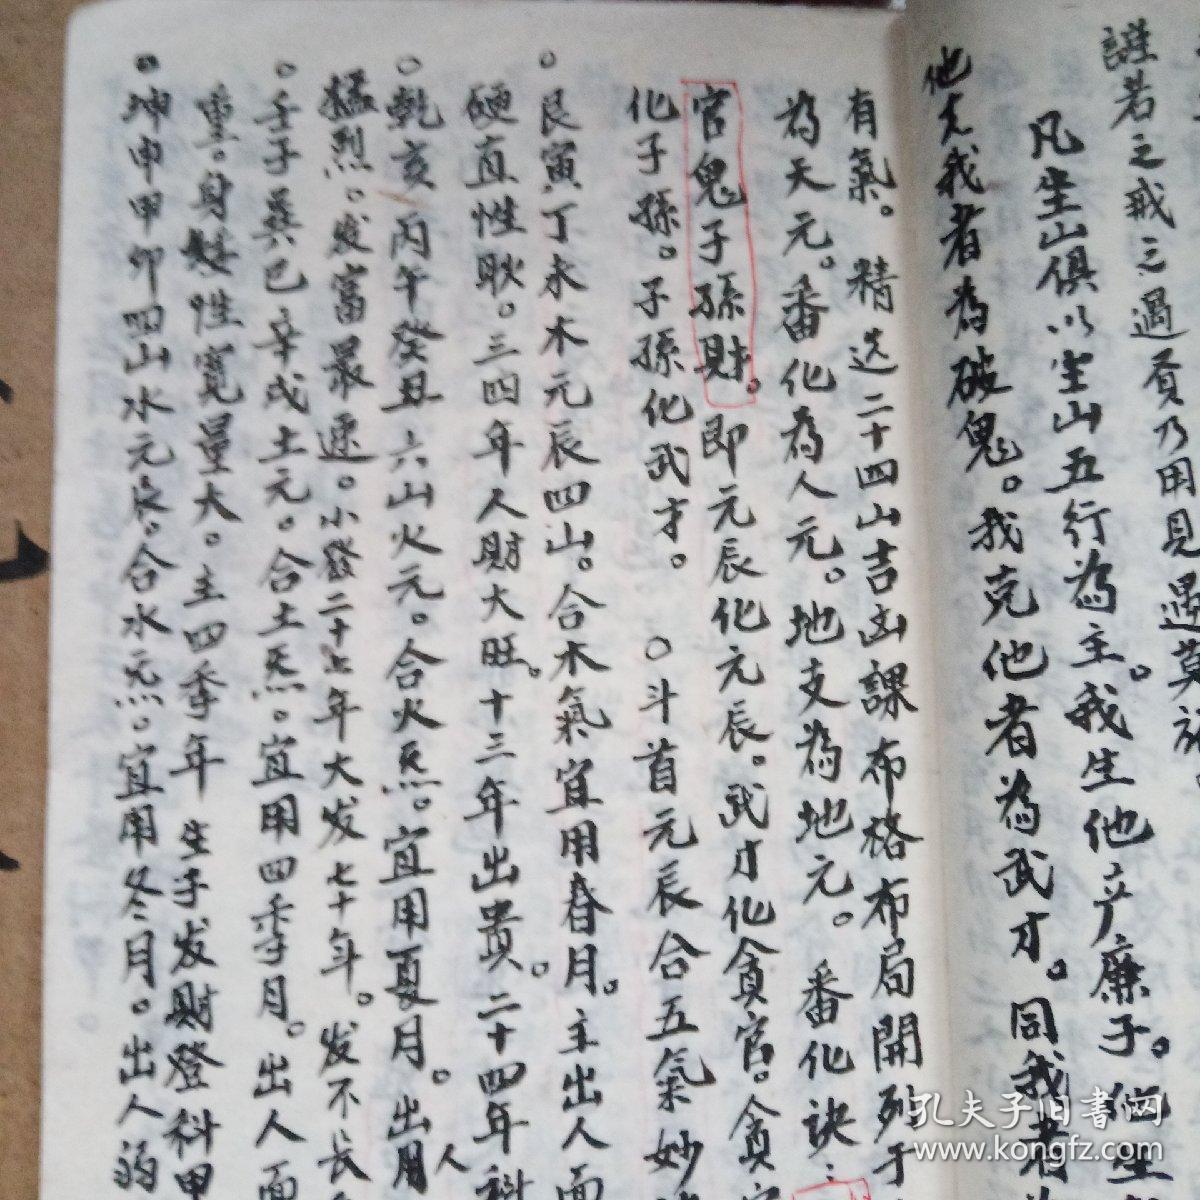 誰若之戒三過貪乃用見遇莫
凡坐山俱以坐山五行為主。我生他廉子。他生
他克我者為破鬼。我克他者為武才。同我者
有氣。精选二十四山吉凶課布格布局開列于
為天元。番化為人元。地支為地元。番化訣:
官鬼子孫財。即元辰化元辰。武才化貪官。貪官
化子孫。子孫化武才。〇斗首元辰合五氣妙
艮寅丁未木元辰四山。合木氣宜用春月。主出人面
硬直性耿。三四年人財大旺。十三年出贵。二十四年科
乾亥丙午癸丑六山火元。合火炁。宜用夏月。出用人
猛烈。发富最速。小發二十七年大发七十年。发不長
壬子巽巳辛戌土元。合土炁。宜用四季月。出人面
重。身矮性寬量大。主四季年生子发财登科甲
坤申甲卯四山水元辰。合水炁。宜用冬月。出人
孔夫子旧书网
www.kongfz.com